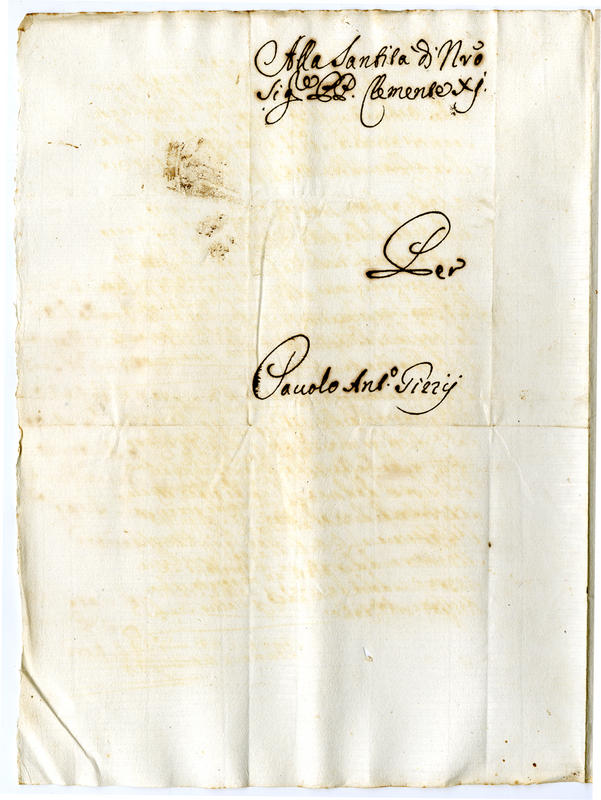 Alla Santità di Nr̃o
Sigre PP. Clemente XI.
Per
Pauolo Anto.